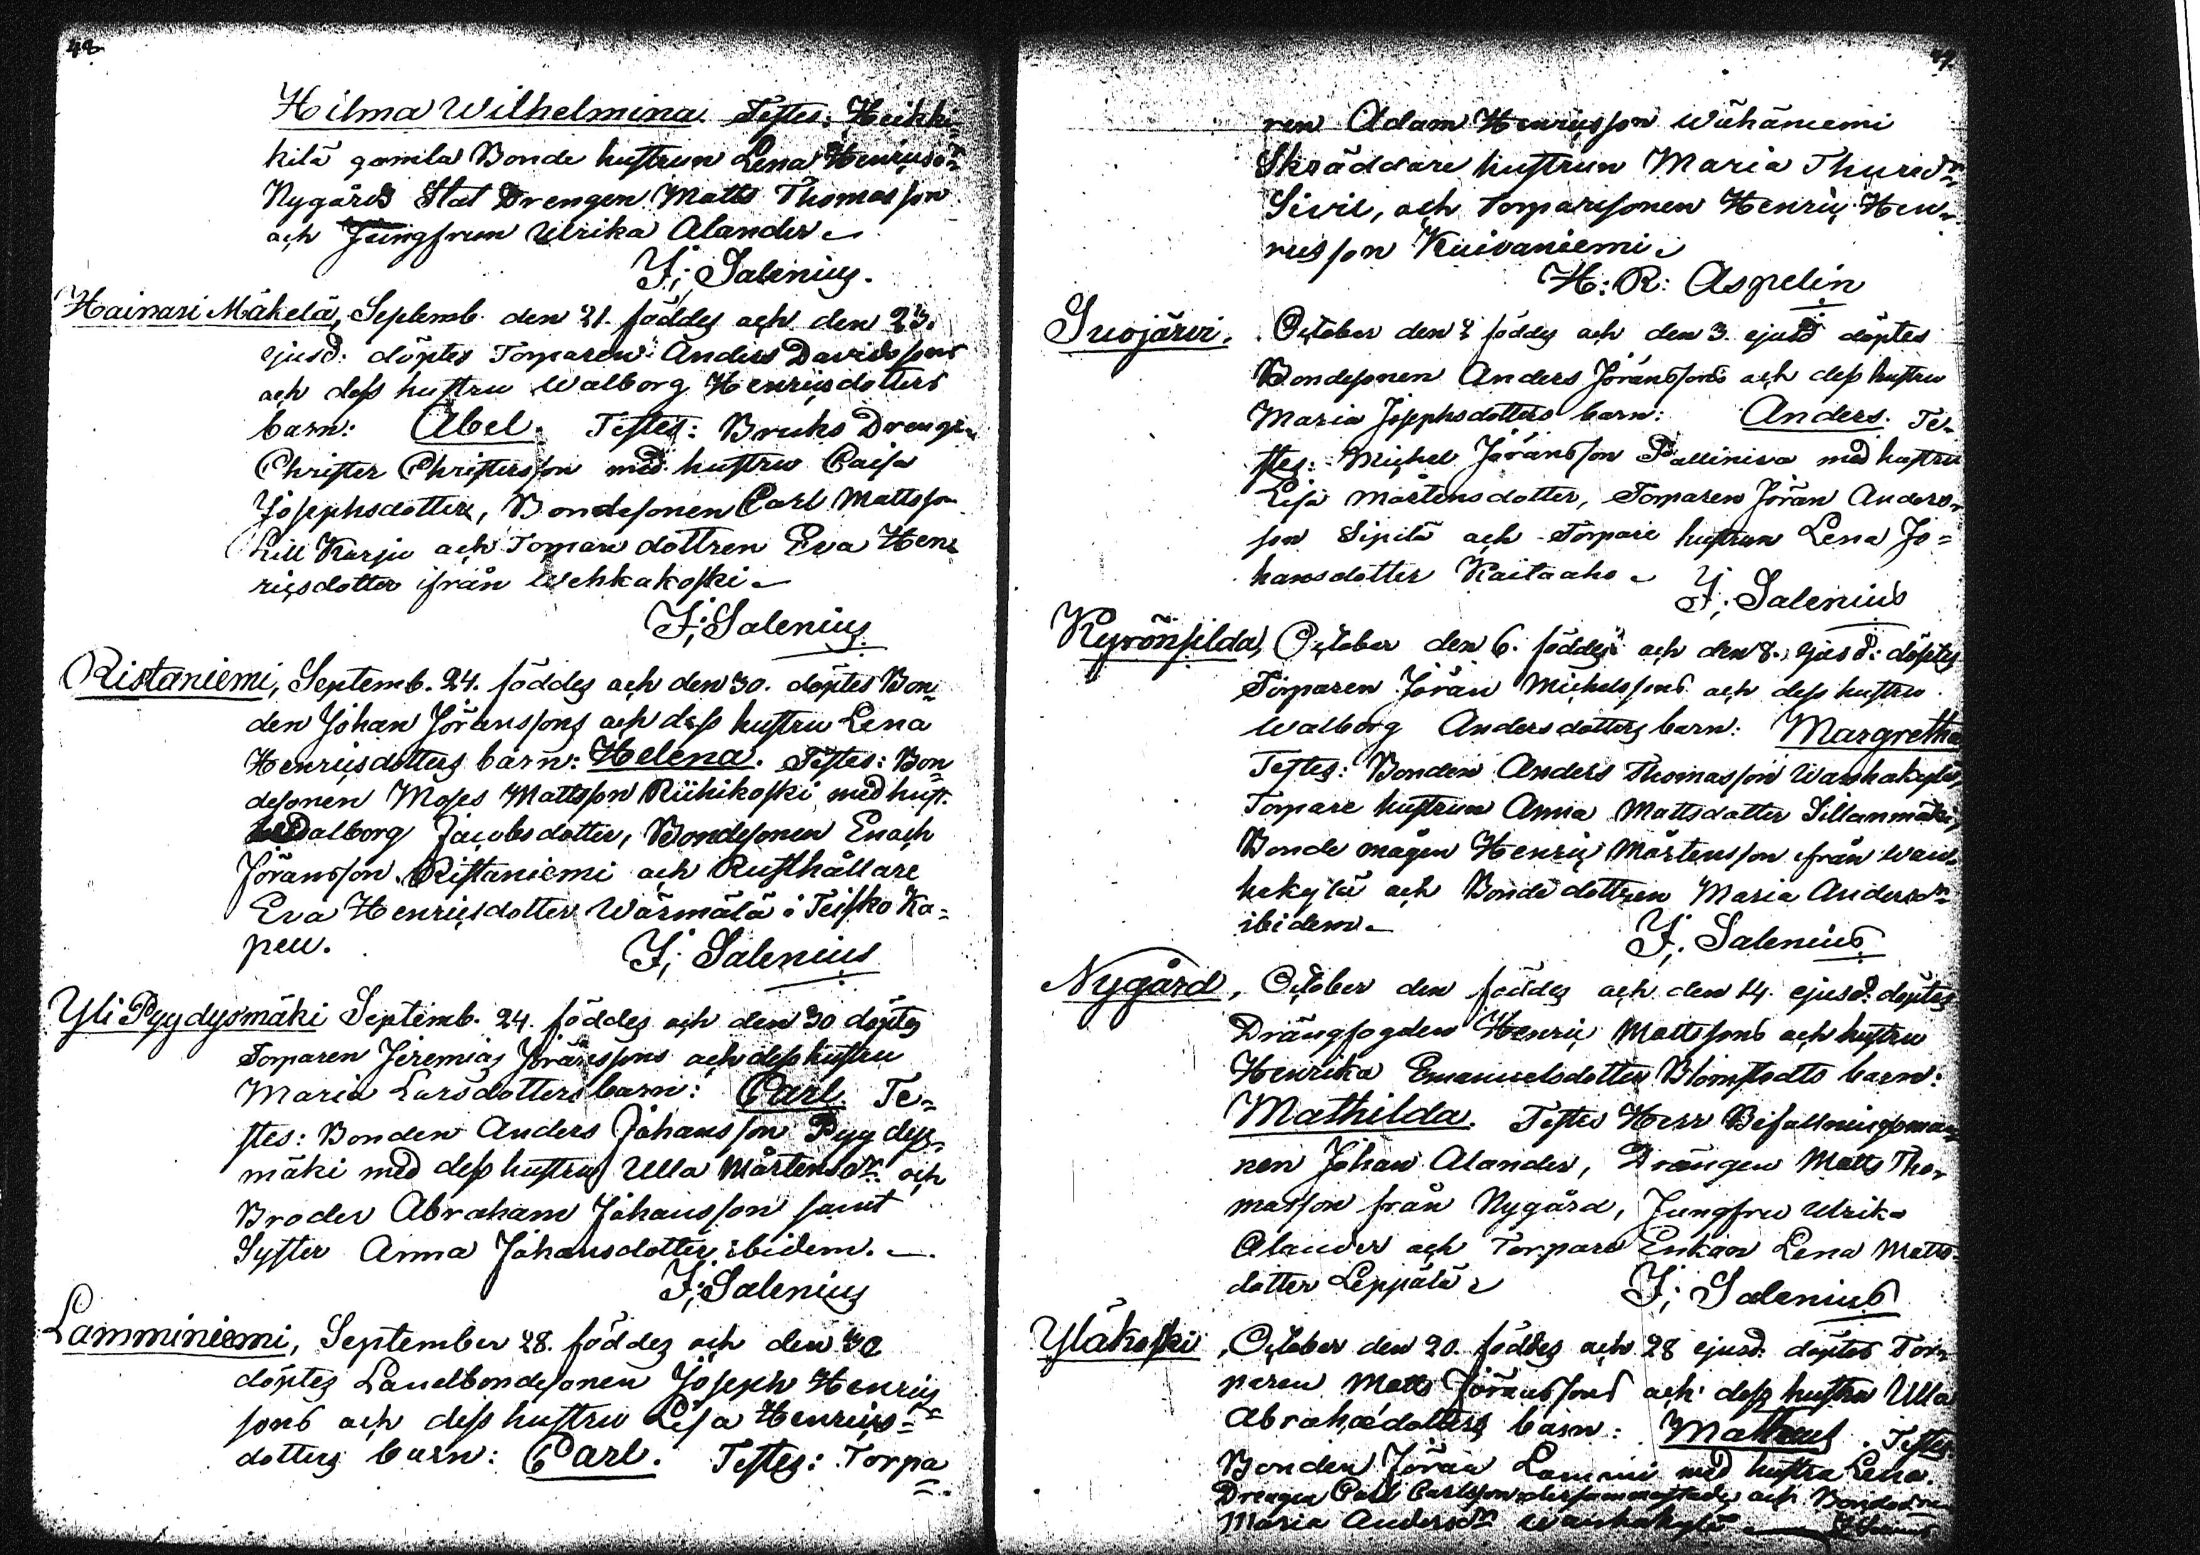 48.
Hilma Wilhelmina. Testes: Heikki-
kilä gamla Bonde hustrun Lena Henricsd:r
Nygårds Stat Drengen Matts Thomasson
och Jungfrun Ulrika Alander.
J; Salenius.
Hainari Mäkelä, Septemb. den 21. föddes och den 23.
ejusd: döptes Torparen Anders Davidssons
och dess hustru Walborg Henricsdotters
barn: Abel. Testes: Bruks Drengen
Christer Christersson med hustru Caisa
Josephsdotter, Bondesonen Carl Mattsson
Lill Karju och Torpare dottren Eva Hen-
ricsdotter ifrån Wehkakoski.
J; Salenius
Ristaniemi, Septemb. 24. föddes och den 30. döptes Bon-
den Johan Jöranssons och dess hustru Lena
Henricsdotters barn: Helena. Testes: Bon-
desonen Moses Mattsson Riihikoski med hust.
Walborg Jacobsdotter, Bondesonen Enach
Jöransson Ristaniemi och Rusthållare
Eva Henricsdotter Wärmälä i Teisko Ka-
pell.
J; Salenius
Yli Pyydysmäki Septemb. 24. föddes och den 30 döptes
Torparen Jeremias Jöranssons och dess hustru
Maria Larsdotters barn: Carl. Te-
stes: Bonden Anders Johansson Pyydys-
mäki med dess hustru Ulla Mårtensd:r och
Broder Abraham Johansson samt
Syster Anna Johansdotter ibidem.
J; Salenius
Lamminiemi, September 28. föddes och den 30
döptes Landbondesonen Joseph Henrics
sons och dess hustru Lisa Henrics-
dotters barn: Carl. Testes: Torpa
49.
ren Adam Henricsson Wähäniemi
Skräddare hustrun Maria Thured:r
Sivil, och Torparesonen Henric Hen-
ricsson Kuivaniemi.
H: R: Aspelin
Suojärvi. October den 2 föddes och den 3. ejusd döptes
Bondesonen Anders Jöranssons och dess hustru
Maria Josephsdotters barn: Anders. Te-
stes: Michel Jöransson Palliniva med hustru
Lisa Mårtensdotter, Torparen Jöran Anders-
son Sipilä och Torpare hustrun Lena Jo-
hansdotter Kaitaaho.
J; Salenius
Kyrönsilda, October den 6. föddes och den 8. ejusd: döptes
Torparen Jöran Michelssons och dess hustru
Walborg Andersdotters barn: Margretha
Testes: Bonden Anders Thomasson Wanhakylä,
Torpare hustrun Anna Mattsdotter Sillanmäki,
Bonde mågen Henric Mårtensson ifrån Wan-
hakylä och Bonde dottren Maria Andersd:r
ibidem.
J; Salenius
Nygård, October den föddes och den 14. ejusd: döptes
Drängfogden Henric Mattssons och hustru
Henrika Emanuelsdotter Blomstedts barn:
Mathilda. Testes Herr Befallningsman
nen Johan Alander, Drängen Matts Tho-
masson från Nygård, Jungfru Ulrika
Alander och Torpare Enkan Lena Matts-
dotter Leppälä.
J; Salenius
Yläkoski, October den 20. föddes och 28 ejusd: döptes Tor-
paren Matts Jöranssons och dess hustru Ulla
Abrah:dotters barn: Mattheus. Testes
Bonden Jöran Lammi med hustru Lena.
Drengen Carl Carlsson dersammastädes och Bonded:ren
Maria Andersd:r Wanhakylä